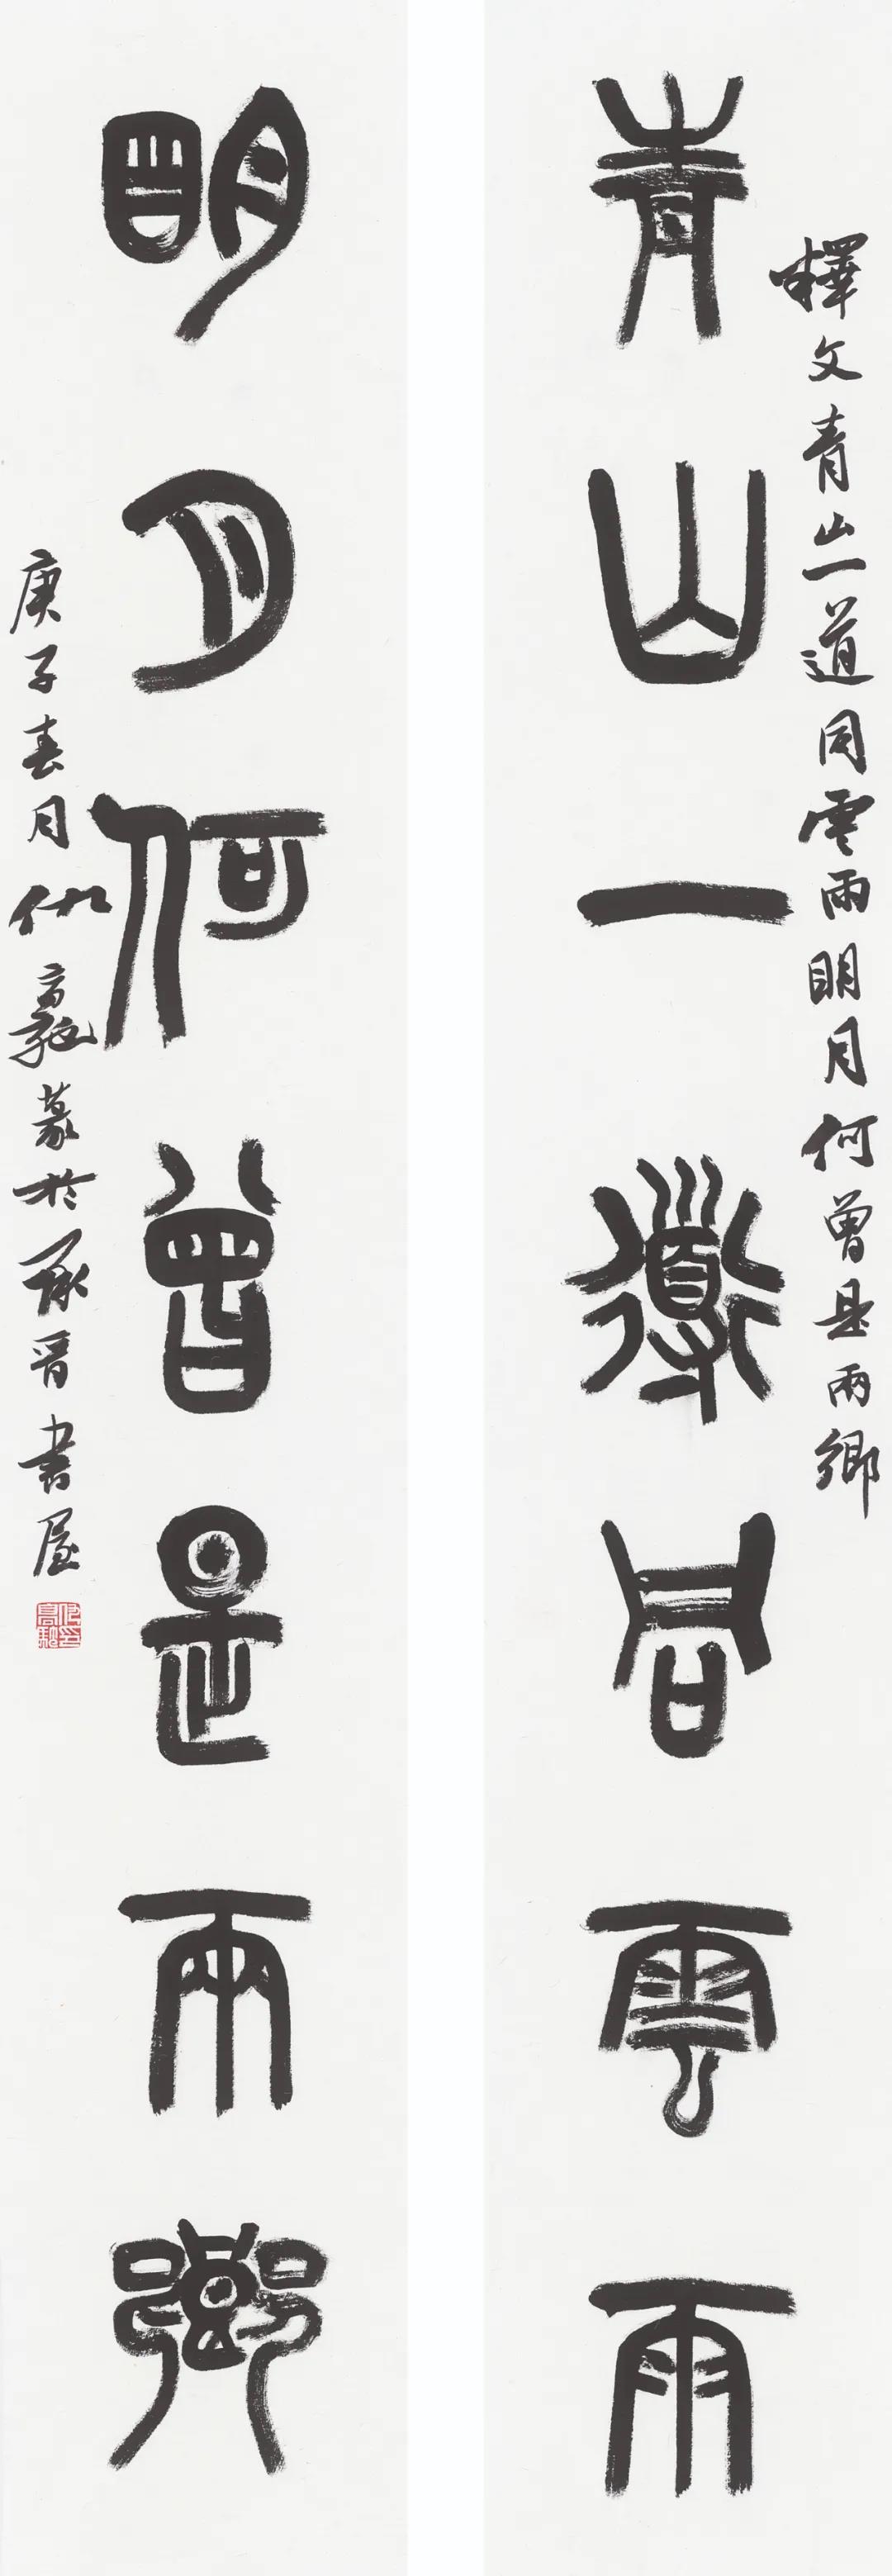 釋文青山一道同雲雨明月何曾是兩鄉
青山一道同雲雨
明月何曾是兩鄉
庚子春月仇高馳篆於承晋書屋